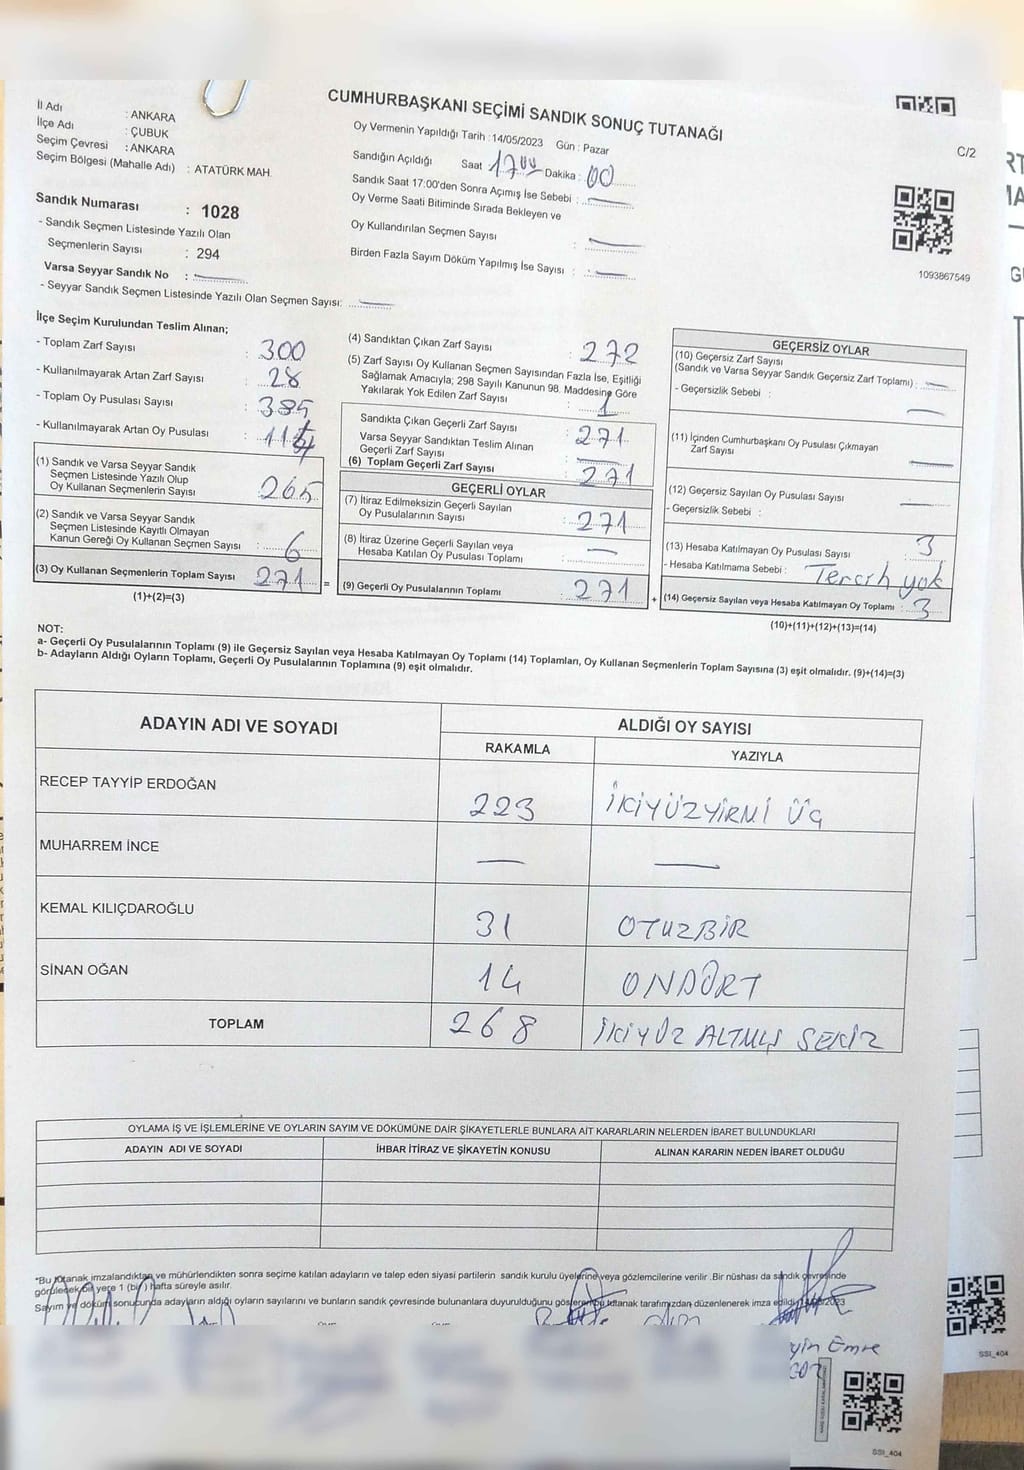 CUMHURBAŞKANI SEÇİMİ SANDIK SONUÇ TUTANAĞI
İl Adı : ANKARA
İlçe Adı : ÇUBUK
Seçim Çevresi : ANKARA
Seçim Bölgesi (Mahalle Adı) : ATATÜRK MAH.
Oy Vermenin Yapıldığı Tarih : 14/05/2023 Gün : Pazar
C/2
Sandığın Açıldığı Saat 17 Dakika : 00
Sandık Saat 17:00'den Sonra Açımış İse Sebebi :
Oy Verme Saati Bitiminde Sırada Bekleyen ve
Oy Kullandırılan Seçmen Sayısı :
Birden Fazla Sayım Döküm Yapılmış İse Sayısı :
1093867549
Sandık Numarası : 1028
- Sandık Seçmen Listesinde Yazılı Olan
Seçmenlerin Sayısı : 294
Varsa Seyyar Sandık No :
- Seyyar Sandık Seçmen Listesinde Yazılı Olan Seçmen Sayısı:
İlçe Seçim Kurulundan Teslim Alınan;
- Toplam Zarf Sayısı : 300
- Kullanılmayarak Artan Zarf Sayısı : 28
- Toplam Oy Pusulası Sayısı : 385
- Kullanılmayarak Artan Oy Pusulası :
(1) Sandık ve Varsa Seyyar Sandık
Seçmen Listesinde Yazılı Olup
Oy Kullanan Seçmenlerin Sayısı : 265
(2) Sandık ve Varsa Seyyar Sandık
Seçmen Listesinde Kayıtlı Olmayan
Kanun Gereği Oy Kullanan Seçmen Sayısı : 6
(3) Oy Kullanan Seçmenlerin Toplam Sayısı : 271 =
(1)+(2)=(3)
(4) Sandıktan Çıkan Zarf Sayısı : 272
(5) Zarf Sayısı Oy Kullanan Seçmen Sayısından Fazla İse, Eşitliği
Sağlamak Amacıyla; 298 Sayılı Kanunun 98. Maddesine Göre
Yakılarak Yok Edilen Zarf Sayısı : 1
Sandıkta Çıkan Geçerli Zarf Sayısı : 271
Varsa Seyyar Sandıktan Teslim Alınan
Geçerli Zarf Sayısı :
(6) Toplam Geçerli Zarf Sayısı : 271
GEÇERLİ OYLAR
(7) İtiraz Edilmeksizin Geçerli Sayılan
Oy Pusulalarının Sayısı : 271
(8) İtiraz Üzerine Geçerli Sayılan veya
Hesaba Katılan Oy Pusulası Toplamı :
(9) Geçerli Oy Pusulalarının Toplamı : 271 +
GEÇERSİZ OYLAR
(10) Geçersiz Zarf Sayısı
(Sandık ve Varsa Seyyar Sandık Geçersiz Zarf Toplamı) :
- Geçersizlik Sebebi :
(11) İçinden Cumhurbaşkanı Oy Pusulası Çıkmayan
Zarf Sayısı
(12) Geçersiz Sayılan Oy Pusulası Sayısı
- Geçersizlik Sebebi :
(13) Hesaba Katılmayan Oy Pusulası Sayısı : 3
- Hesaba Katılmama Sebebi : Tercih yok
(14) Geçersiz Sayılan veya Hesaba Katılmayan Oy Toplamı : 3
(10)+(11)+(12)+(13)=(14)
NOT:
a- Geçerli Oy Pusulalarının Toplamı (9) ile Geçersiz Sayılan veya Hesaba Katılmayan Oy Toplamı (14) Toplamları, Oy Kullanan Seçmenlerin Toplam Sayısına (3) eşit olmalıdır. (9)+(14)=(3)
b- Adayların Aldığı Oyların Toplamı, Geçerli Oy Pusulalarının Toplamına (9) eşit olmalıdır.
ADAYIN ADI VE SOYADI ALDIĞI OY SAYISI
RAKAMLA YAZIYLA
RECEP TAYYİP ERDOĞAN 223 İKİYÜZYİRMİ ÜÇ
MUHARREM İNCE —
KEMAL KILIÇDAROĞLU 31 OTUZBİR
SİNAN OĞAN 14 ONDÖRT
TOPLAM 268 İKİYÜZ ALTMIŞ SEKİZ
OYLAMA İŞ VE İŞLEMLERİNE VE OYLARIN SAYIM VE DÖKÜMÜNE DAİR ŞİKAYETLERLE BUNLARA AİT KARARLARIN NELERDEN İBARET BULUNDUKLARI
ADAYIN ADI VE SOYADI İHBAR İTİRAZ VE ŞİKAYETİN KONUSU ALINAN KARARIN NEDEN İBARET OLDUĞU
*Bu tutanak imzalandıktan ve mühürlendikten sonra seçime katılan adayların ve talep eden siyasi partilerin sandık kurulu üyelerine veya gözlemcilerine verilir .Bir nüshası da sandık çevresinde
görülecek bir yere 1 (bir) hafta süreyle asılır.
Sayım ve döküm sonucunda adayların aldığı oyların sayılarını ve bunların sandık çevresinde bulunanlara duyurulduğunu gösteren bu tutanak tarafımızdan düzenlenerek imza edildi.
yin Emre
SSI_404
SSI_404